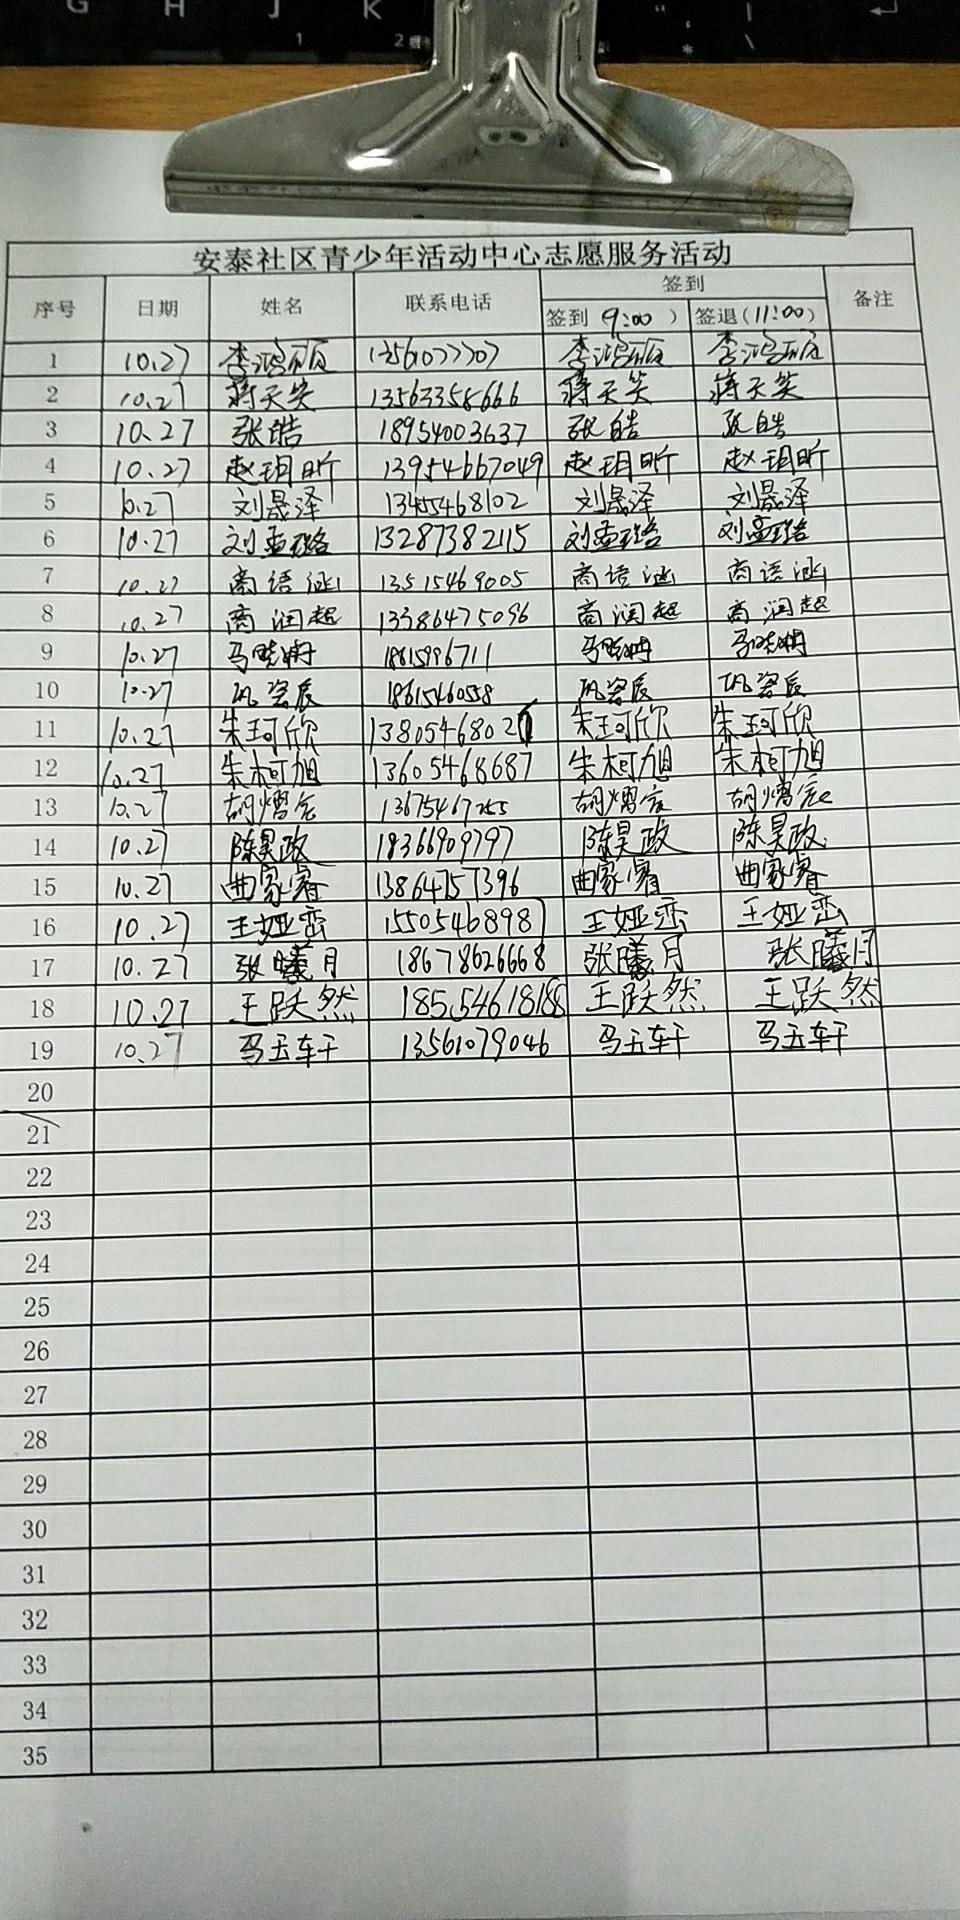 G H J K
1 2
安泰社区青少年活动中心志愿服务活动
序号 日期 姓名 联系电话 签到 备注
签到 9:00 ) 签退(11:00)
1 10.27 李鸿丽 李鸿丽 李鸿丽
2 10.27 蒋天笑 13563358666 蒋天笑 蒋天笑
3 10.27 张皓 18954003637 张皓 张皓
4 10.27 赵玥昕 13954667049 赵玥昕 赵玥昕
5 10.27 刘晟泽 13455468102 刘晟泽 刘晟泽
6 10.27 刘孟璐 13287382115 刘孟璐 刘孟璐
7 10.27 商语涵 13515469005 商语涵 商语涵
8 10.27 商润超 13386475096 商润超 商润超
9 10.27 18615996711
10 10.27 18615460558
11 10.27 朱珂欣 朱珂欣 朱珂欣
12 10.27 朱柯旭 13605468687 朱柯旭 朱柯旭
13 10.27 13675467255
14 10.27 陈昊政 18366909797 陈昊政 陈昊政
15 10.27 曲家睿 13864757396 曲家睿 曲家睿
16 10.27 王娅峦 15505468987 王娅峦 王娅峦
17 10.27 张曦月 18678626668 张曦月 张曦月
18 10.27 王跃然 18554618188 王跃然 王跃然
19 10.27 马玉轩 13561079046 马玉轩 马玉轩
20
21
22
23
24
25
26
27
28
29
30
31
32
33
34
35